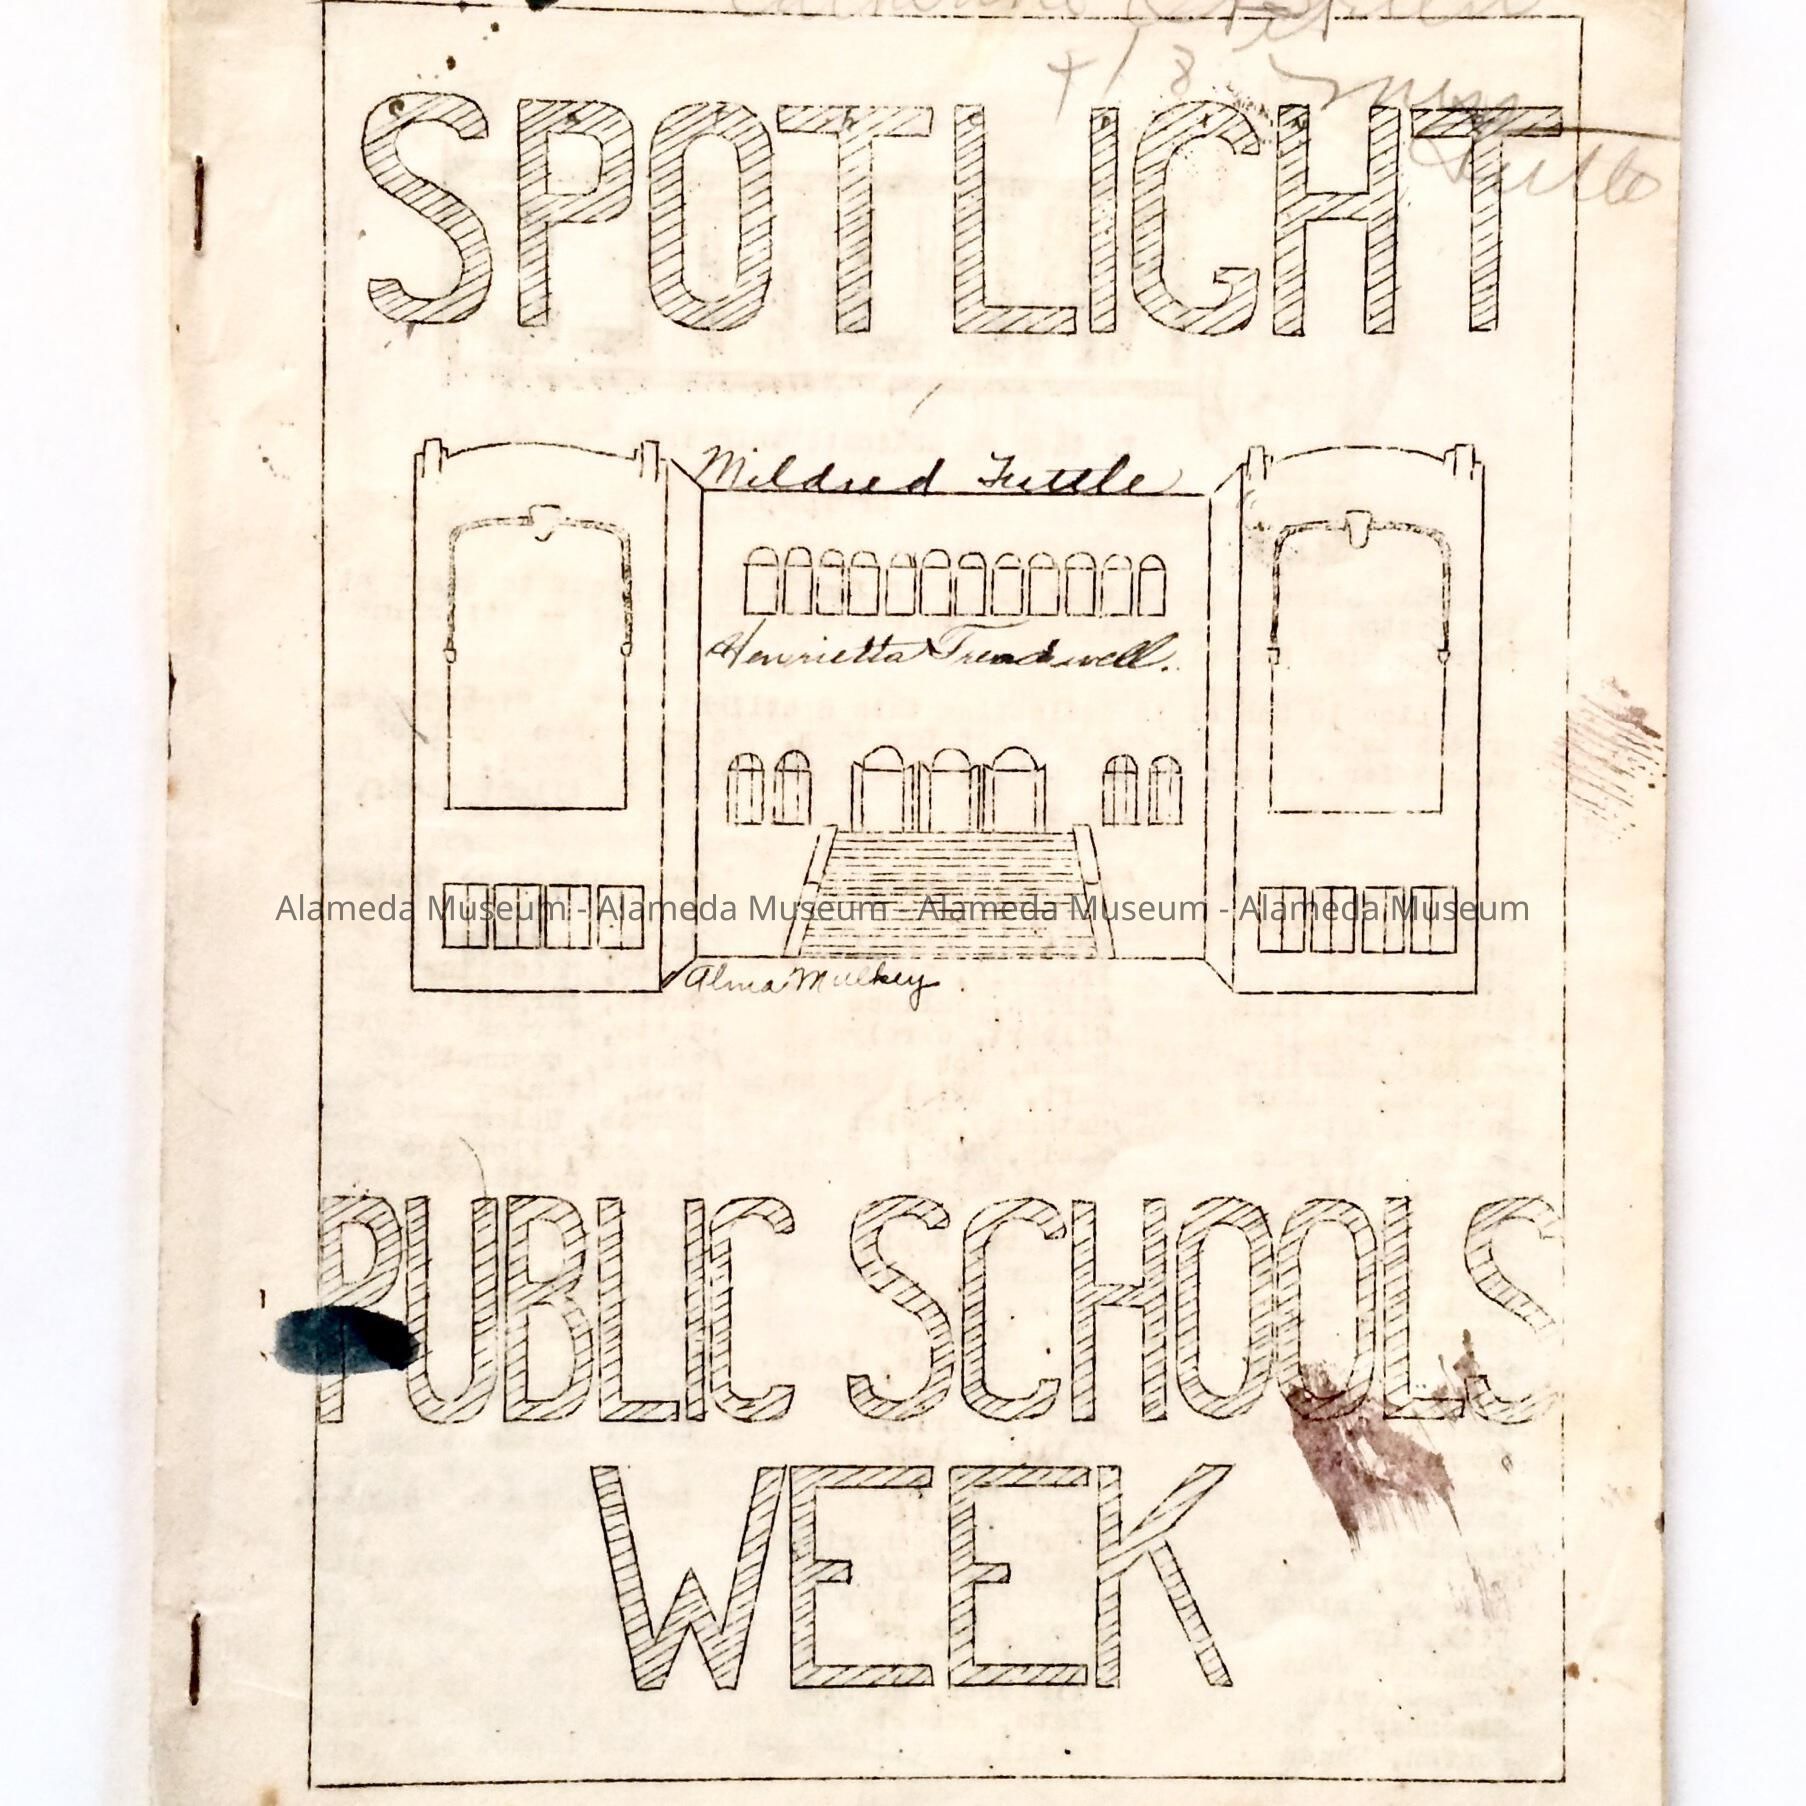 Catherine
+ 18 Miss
SPOTLIGHT
Tuttle
Mildred Tuttle
Henrietta Treadwell.
Alameda Museum - Alameda Museum - Alameda Museum - Alameda Museum
Alma Mulkey
PUBLIC SCHOOLS
WEEK